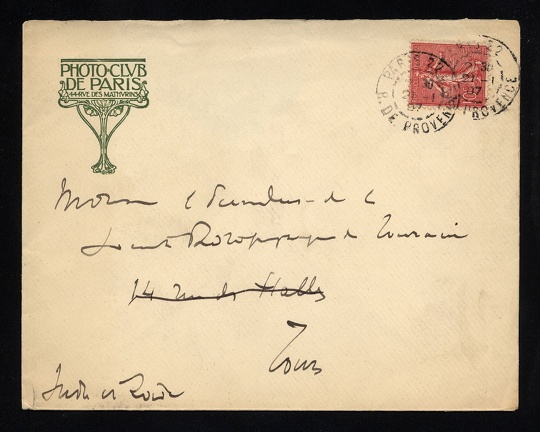 PHOTO-CLVB
DE PARIS
44 RUE DES MATHVRINS
PARIS 22
R. DE PROVENCE
Monsieur le Président de la
Société Photographique de Touraine
14 rue des Halles
Tours
Indre et Loire